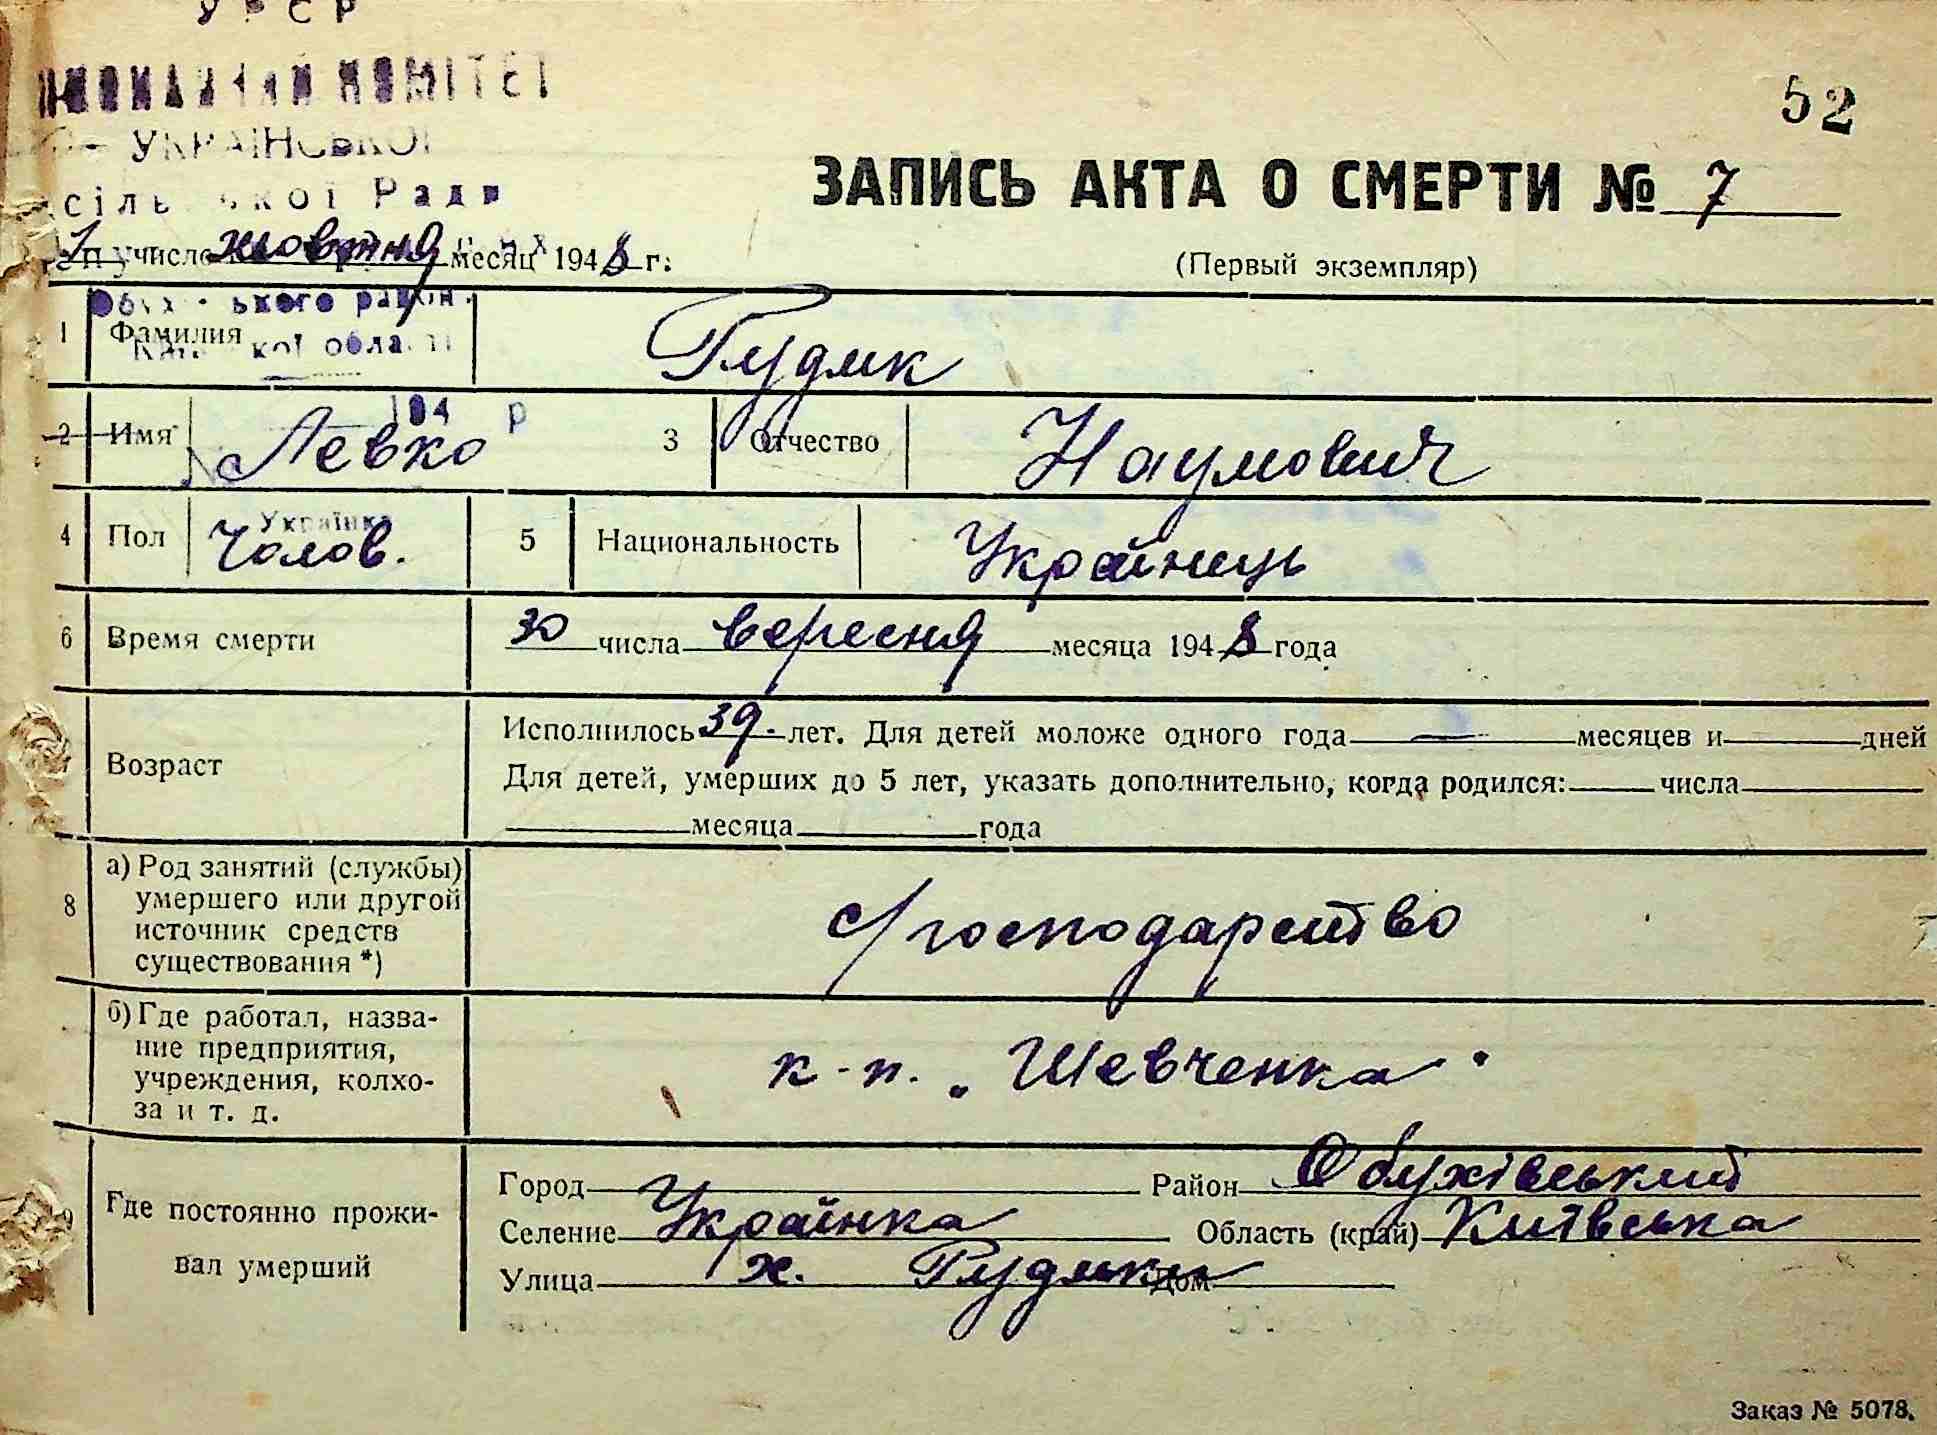 УРСР
ВИКОНАВЧИЙ КОМІТЕТ
УКРАЇНСЬКОЇ
сільської Ради
Обухівського район.
Київської області
194 р
№
Українка
52
ЗАПИСЬ АКТА О СМЕРТИ № 7
1 числа жовтня месяц 1948 г.
(Первый экземпляр)
1 Фамилия Рудик
2 Имя Левко 3 Отчество Наумович
4 Пол Чолов. 5 Национальность Українець
6 Время смерти 30 числа вересня месяца 1948 года
Возраст Исполнилось 39. лет. Для детей моложе одного года — месяцев и дней
Для детей, умерших до 5 лет, указать дополнительно, когда родился: числа
месяца года
8 а) Род занятий (службы) умершего или другой источник средств существования *) с/господарство
б) Где работал, назва-
ние предприятия,
учреждения, колхо-
за и т. д. к-п. „Шевченка"
9 Где постоянно прожи-
вал умерший
Город Район Обухівський
Селение Українка Область (край) Київська
Улица х. Рудики Дом
Заказ № 5078.